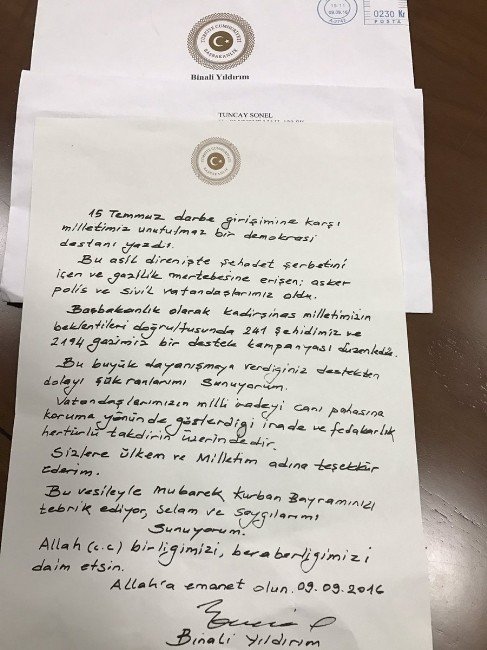 TÜRKİYE CUMHURİYETİ
BAŞBAKANLIK
Binali Yıldırım
09.09.16
0230 Kr
POSTA
TUNCAY SONEL
15 Temmuz darbe girişimine karşı
milletimiz unutulmaz bir demokrasi
destanı yazdı.
Bu asil direnişte şehadet şerbetini
içen ve gazilik mertebesine erişen; asker
polis ve sivil vatandaşlarımız oldu.
Başbakanlık olarak kadirşinas milletimizin
beklentileri doğrultusunda 241 şehidimiz ve
2194 gazimiz bir destek kampanyası düzenledik.
Bu büyük dayanışmaya verdiğiniz destekten
dolayı şükranlarımı sunuyorum.
Vatandaşlarımızın milli iradeyi canı pahasına
koruma yönünde gösterdiği irade ve fedakarlık
hertürlü takdirin üzerindedir.
Sizlere ülkem ve Milletim adına teşekkür
ederim.
Bu vesileyle mubarek Kurban Bayramınızı
tebrik ediyor, selam ve saygılarımı
sunuyorum.
Allah (c.c) birliğimizi, beraberliğimizi
daim etsin.
Allah'a emanet olun. 09.09.2016
Binali Yıldırım